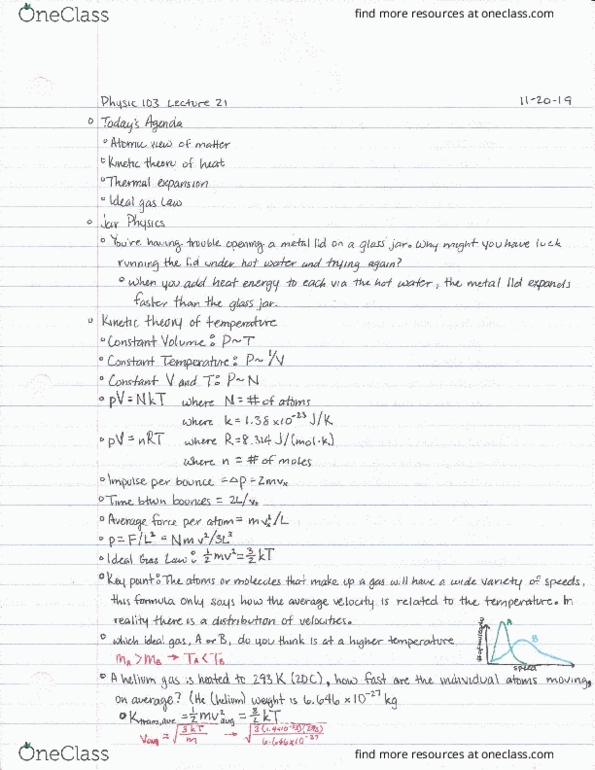 OneClass
find more resources at oneclass.com
Physic 103 Lecture 21
11-20-19
Today's Agenda
Atomic view of matter
Kinetic theory of heat
Thermal expansion
Ideal gas Law
Jar Physics
You're having trouble opening a metal lid on a glass jar. Why might you have luck
running the lid under hot water and trying again?
When you add heat energy to each via the hot water, the metal lid expands
faster than the glass jar.
Kinetic theory of temperature
Constant Volume: P~T
Constant Temperature: P~ 1/V
Constant V and T: P~N
pV=NkT where N=# of atoms
where k=1.38 x10⁻²³ J/K
pV=nRT where R=8.314 J/(mol·K)
where n = # of moles
Impulse per bounce = Δp = 2mvₓ
Time btwn bounces = 2L/vₓ
Average force per atom = mvₓ²/L
p=F/L² = Nmv²/3L³
Ideal Gas Law: ½mv²=3/2 kT
Key point: The atoms or molecules that make up a gas will have a wide variety of speeds,
this formula only says how the average velocity is related to the temperature. In
reality there is a distribution of velocities.
Which ideal gas, A or B, do you think is at a higher temperature
A
B
speed
mA > mB → TA < TB
A helium gas is heated to 293 K (20C), how fast are the individual atoms moving,
on average? (He (helium) weight is 6.646 x10⁻²⁷ kg
Ktrans,ave = ½mv²avg = 3/2 kT
Vavg = √(3kT/m) → √(3(1.4x10⁻²³)(293)/6.646x10⁻²⁷)
OneClass
find more resources at oneclass.com